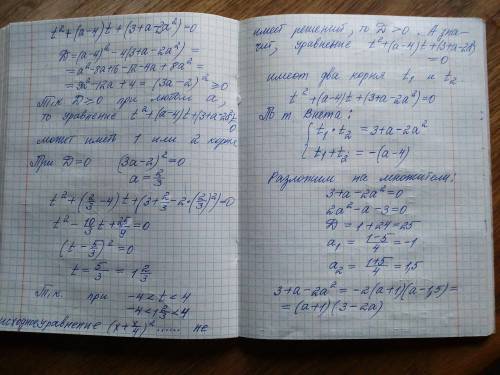 t² + (a-4)t + (3+a-2a²) = 0
D = (a-4)² - 4(3+a-2a²) =
= a² - 8a + 16 - 12 - 4a + 8a² =
= 9a² - 12a + 4 = (3a-2)² ≥ 0
Т.к. D ≥ 0 при любом a,
то уравнение t² + (a-4)t + (3+a-2a²) =
0
может иметь 1 или 2 корня
При D=0 (3a-2)² = 0
a = 2/3
t² + (2/3 - 4)t + (3 + 2/3 - 2·(2/3)²) = 0
t² - 10/3 t + 25/9 = 0
(t - 5/3)² = 0
t = 5/3 = 1 2/3
Т.к. при -4 < t < 4
-4 < 1 2/3 < 4
исходное уравнение (x + x/4)² ...... не
имеет решений, то D > 0. А зна-
чит, уравнение t² + (a-4)t + (3+a-2a²)
= 0
имеет два корня t₁ и t₂
t² + (a-4)t + (3+a-2a²) = 0
По т Виета:
{ t₁ · t₂ = 3+a-2a²
t₁ + t₂ = -(a-4)
Разложим на множители:
3+a-2a² = 0
2a² - a - 3 = 0
D = 1 + 24 = 25
a₁ = (1-5)/4 = -1
a₂ = (1+5)/4 = 1,5
3+a-2a² = -2(a+1)(a-1,5) =
= (a+1)(3-2a)